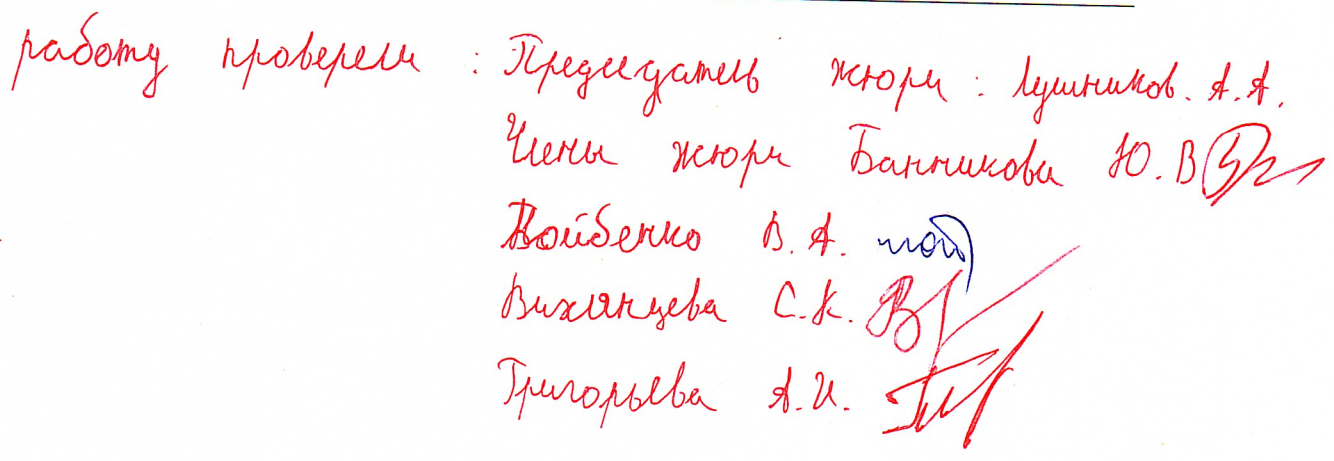 работу проверели : Председатель жюри : Лушников. А.А.
Члены жюри Банникова Ю.В
Войбенко В.А.
Вихянцева С.К.
Григорьева А.И.